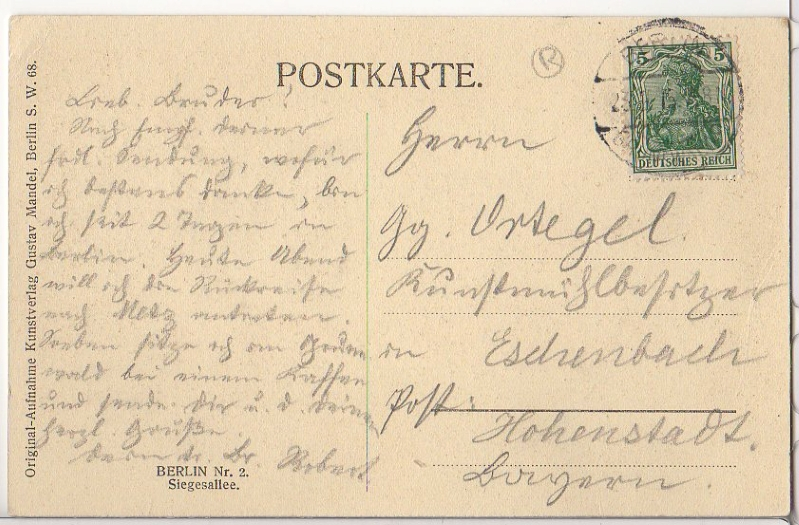 POSTKARTE.
Original-Aufnahme Kunstverlag Gustav Mandel, Berlin S. W. 68.
Lieb. Bruder!
Nach Empf. Deiner
frdl. Sendung, wofür
ich bestens danke, bin
ich seit 2 Tagen in
Berlin. Heute Abend
will ich die Rückreise
nach Metz antreten.
Soeben sitze ich im Grune
wald bei einem Kaffee
und sende Dir u. d. Deinen
herzl. Grüße.
Dein tr. Br. Robert
BERLIN Nr. 2.
Siegesallee.
R
5 5
DEUTSCHES REICH
Herrn
Gg. Ortegel
Kunstmühlbesitzer
in Eschenbach
Post: Hohenstadt.
Bayern.